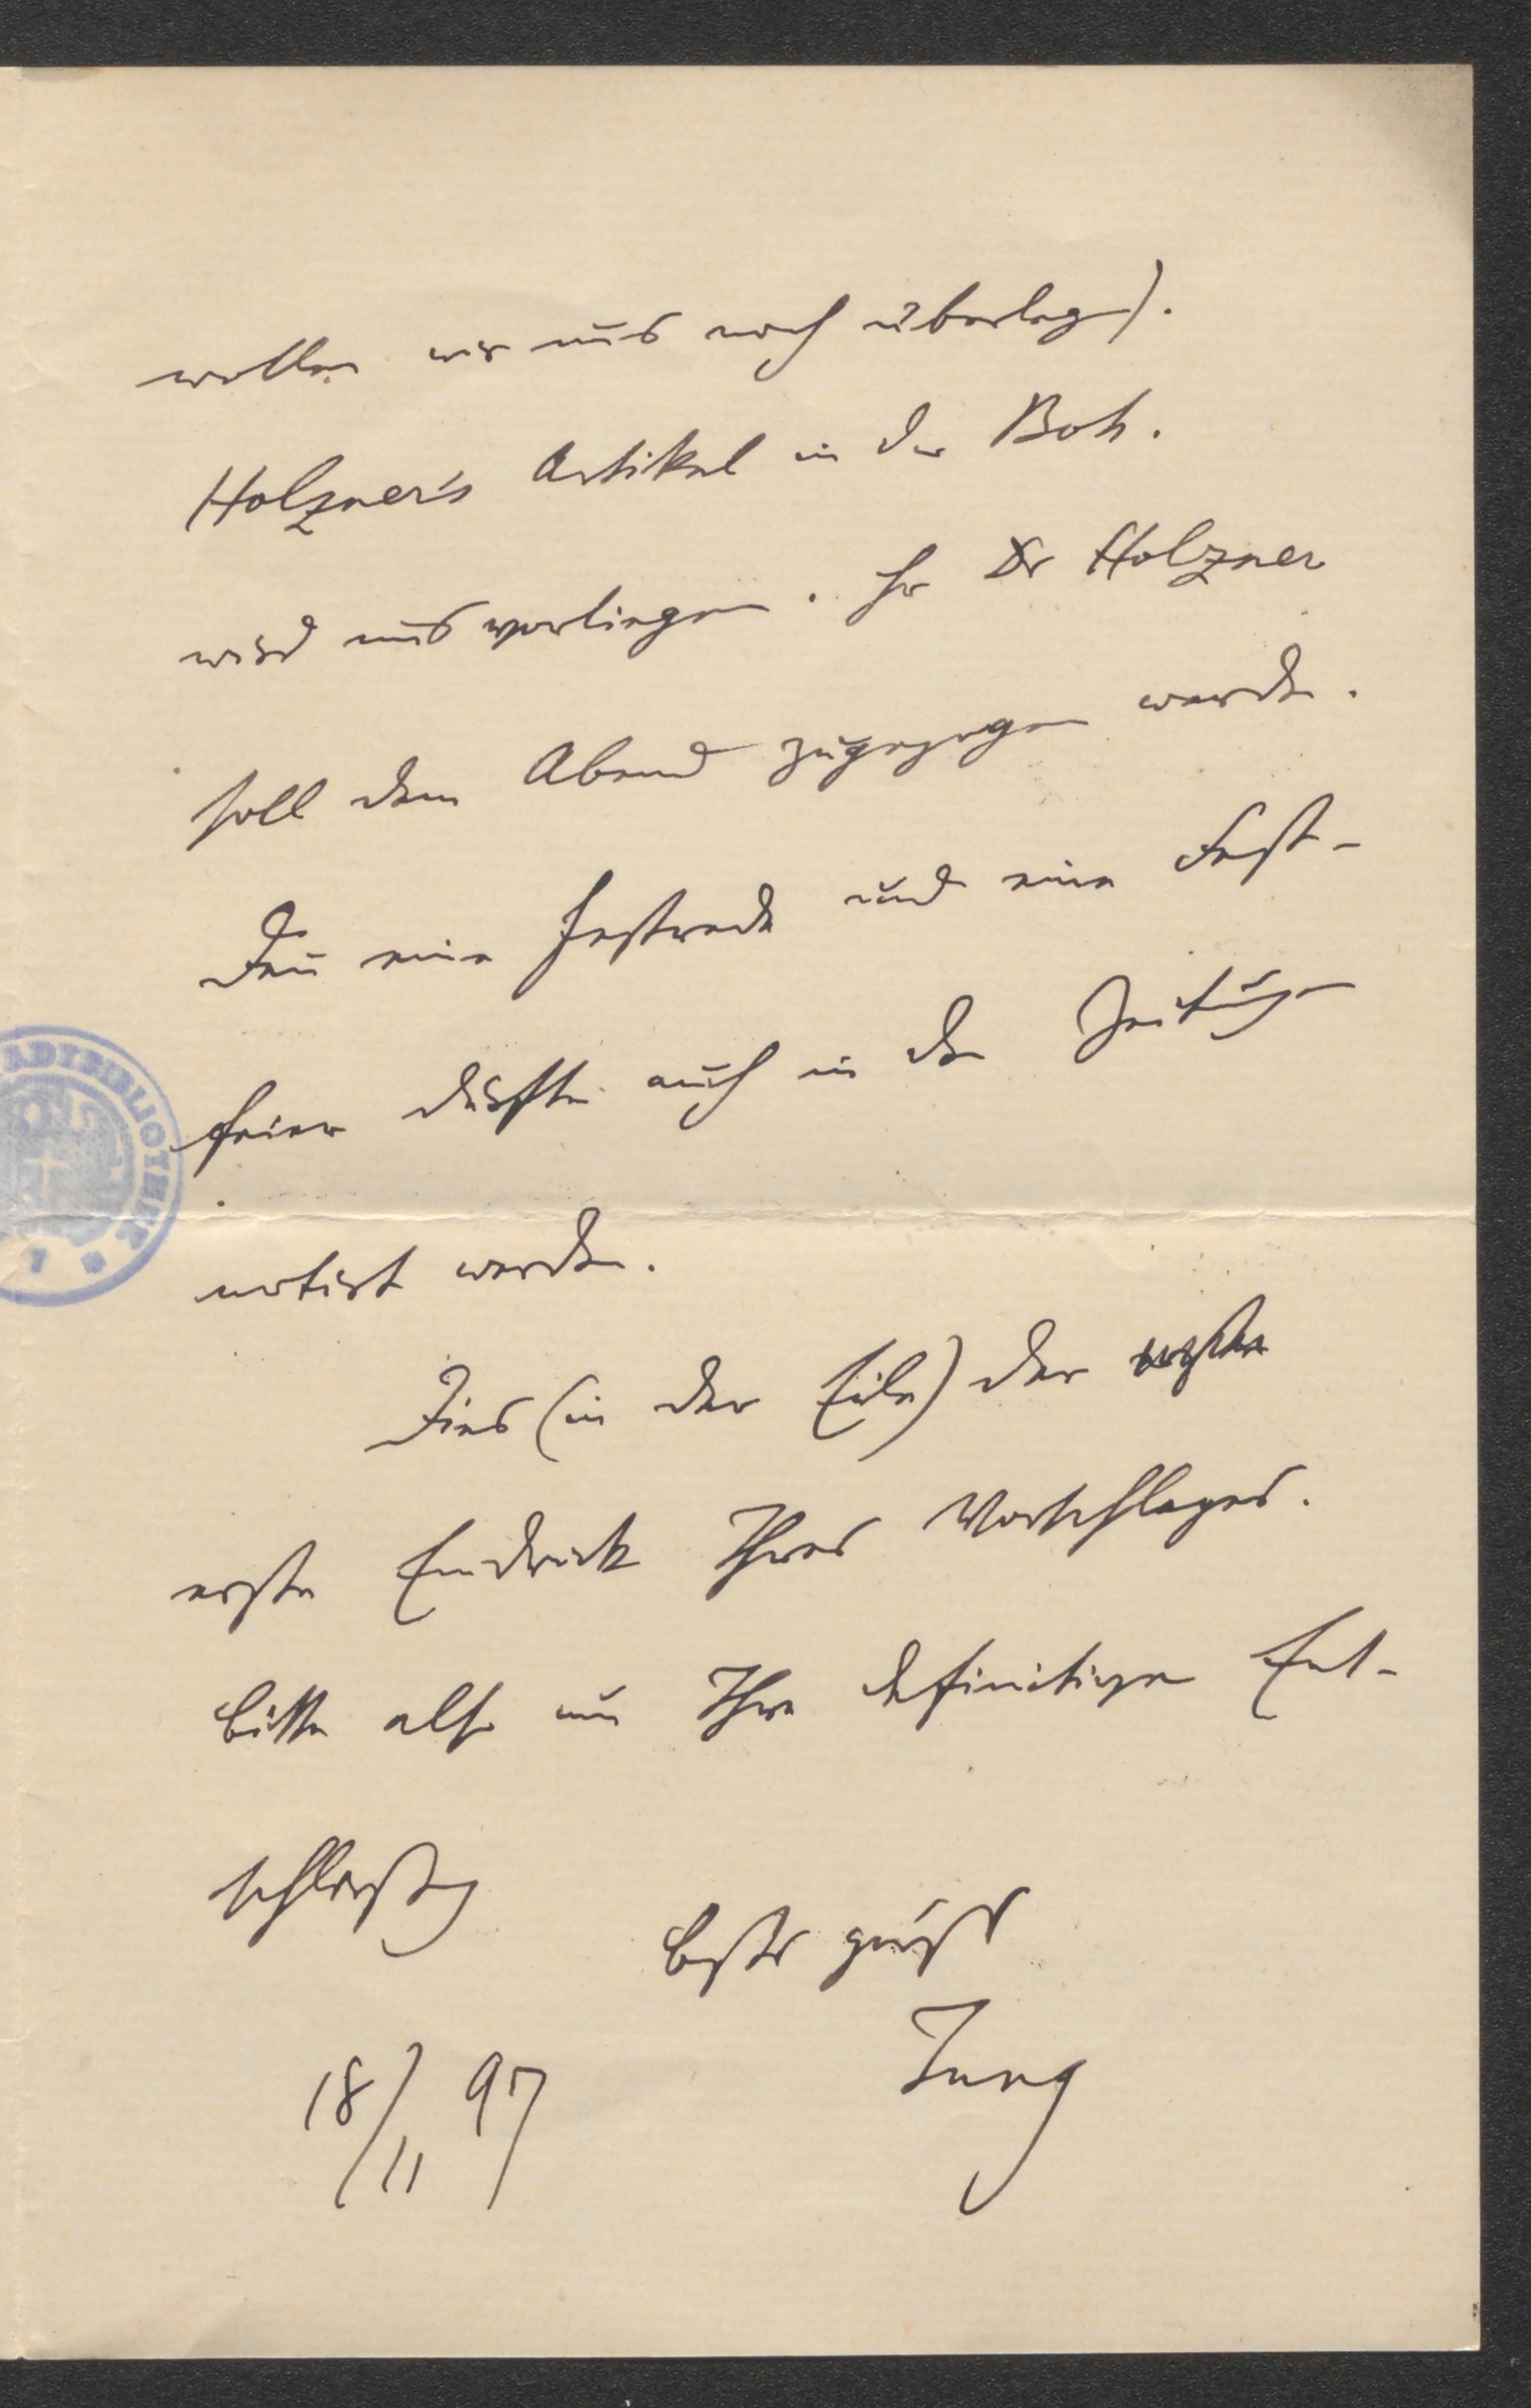 wollen wir uns noch überlegen).
Holzner's Artikel in der Boh.
wird uns vorliegen. Hr Dr Holzner
soll dem Abend zugezogen werden.
Denn eine Festrede und eine Fest-
feier dürfte auch in den Zeitungen
notirt werden.
Dies (in der Eile) der
erste Eindruck Ihres Vorschlages.
bitte also um Ihre definitive Ent-
schließung
beste Grüße
Jung
18/11 97
STADTBIBLIOTHEK